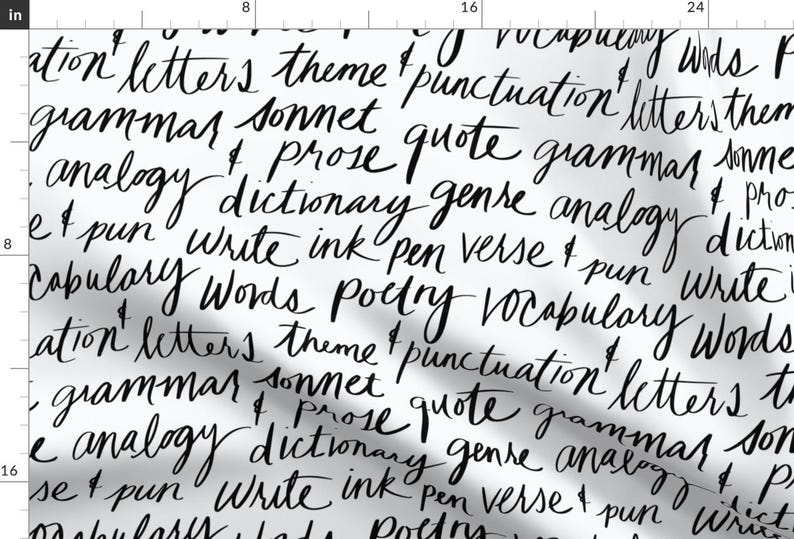 in 8 16 24
vocabulary words
ation & letters theme & punctuation & letters them
grammar sonnet quote grammar sonne
& prose & pros
analogy dictionary genre analogy diction
8
e & pun write ink pen verse & pun write i
cabulary words poetry vocabulary words
ation & letters theme & punctuation & letters th
grammar sonnet quote grammar son
& prose & p
e analogy dictionary genre analogy dict
16
se & pun write ink pen verse & pun write
ocabulary words poetry